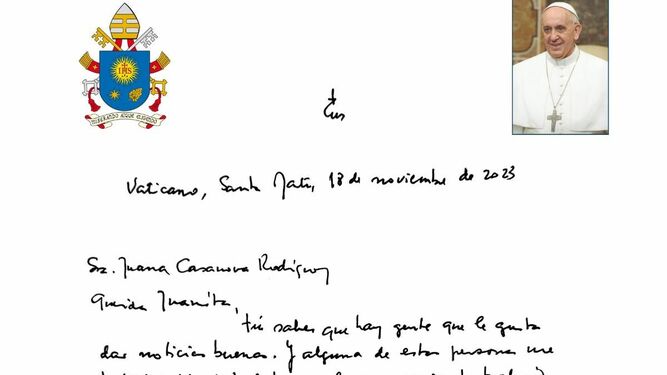 IHS
MISERANDO ATQUE ELIGENDO
Vaticano, Santa Marta, 18 de noviembre de 2023
Sra. Juana Casanova Rodríguez
Querida Juanita,
tú sabes que hay gente que le gusta
dar noticias buenas. Y alguna de estas personas me